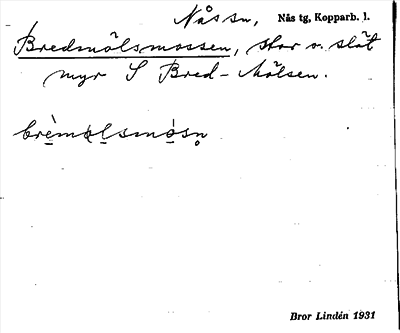 Nås sn, Nås tg, Kopparb. l.
Bredmölsmossen, stor o. slät
myr S Bred-Mölsen.
brèmǫlsmósn̥
Bror Lindén 1931